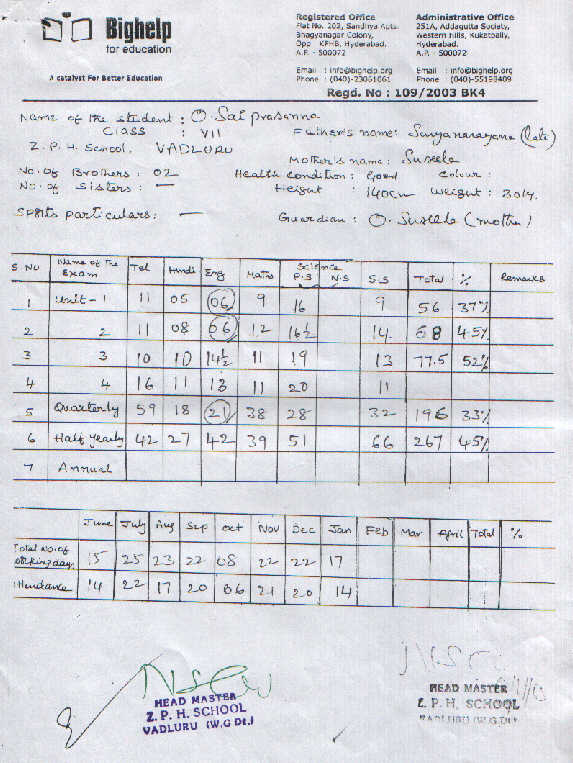 Bighelp
for education
A catalyst For Better Education
Registered Office
Flat No. 202, Sandhya Apts.
Bhagyanagar Colony,
Opp. KPHB, Hyderabad.
A.P. - 500072
Email : info@bighelp.org
Phone : (040)-23061061
Administrative Office
251A, Addagutta Society,
Western Hills, Kukatpally,
Hyderabad.
A.P. - 500072
Email : info@bighelp.org
Phone : (040)-55198409
Regd. No : 109/2003 BK4
Name of the student : O. Sai prasanna
Class : VII
Father's name: Suryanarayana (late)
Z. P. H. School. VADLURU
Mother's name: Suseela
No. of Brothers : 02 Health condition : Good Colour :
No. of Sisters : — Height : 140cm Weight : 30kg.
Sports particulars: — Guardian : O. Suseela (mother)
S No Name of the Exam Tel Hindi Eng Maths Science P.S N.S S.S Total % Remarks
1 Unit - 1 11 05 06 9 16 9 56 37%
2 2 11 08 06 12 16½ 14 68 45%
3 3 10 10 14½ 11 19 13 77.5 52%
4 4 16 11 13 11 20 11
5 Quarterly 59 18 21 38 28 32 196 33%
6 Half Yearly 42 27 42 39 51 66 267 45%
7 Annual
June July Aug Sep Oct Nov Dec Jan Feb Mar April Total %
Total No. of working days 15 25 23 22 08 22 22 17
Attendance 14 22 17 20 06 21 20 14
HEAD MASTER
Z. P. H. SCHOOL
VADLURU (W.G Dt.)
HEAD MASTER
Z. P. H. SCHOOL
VADLURU (W.G Dt.)